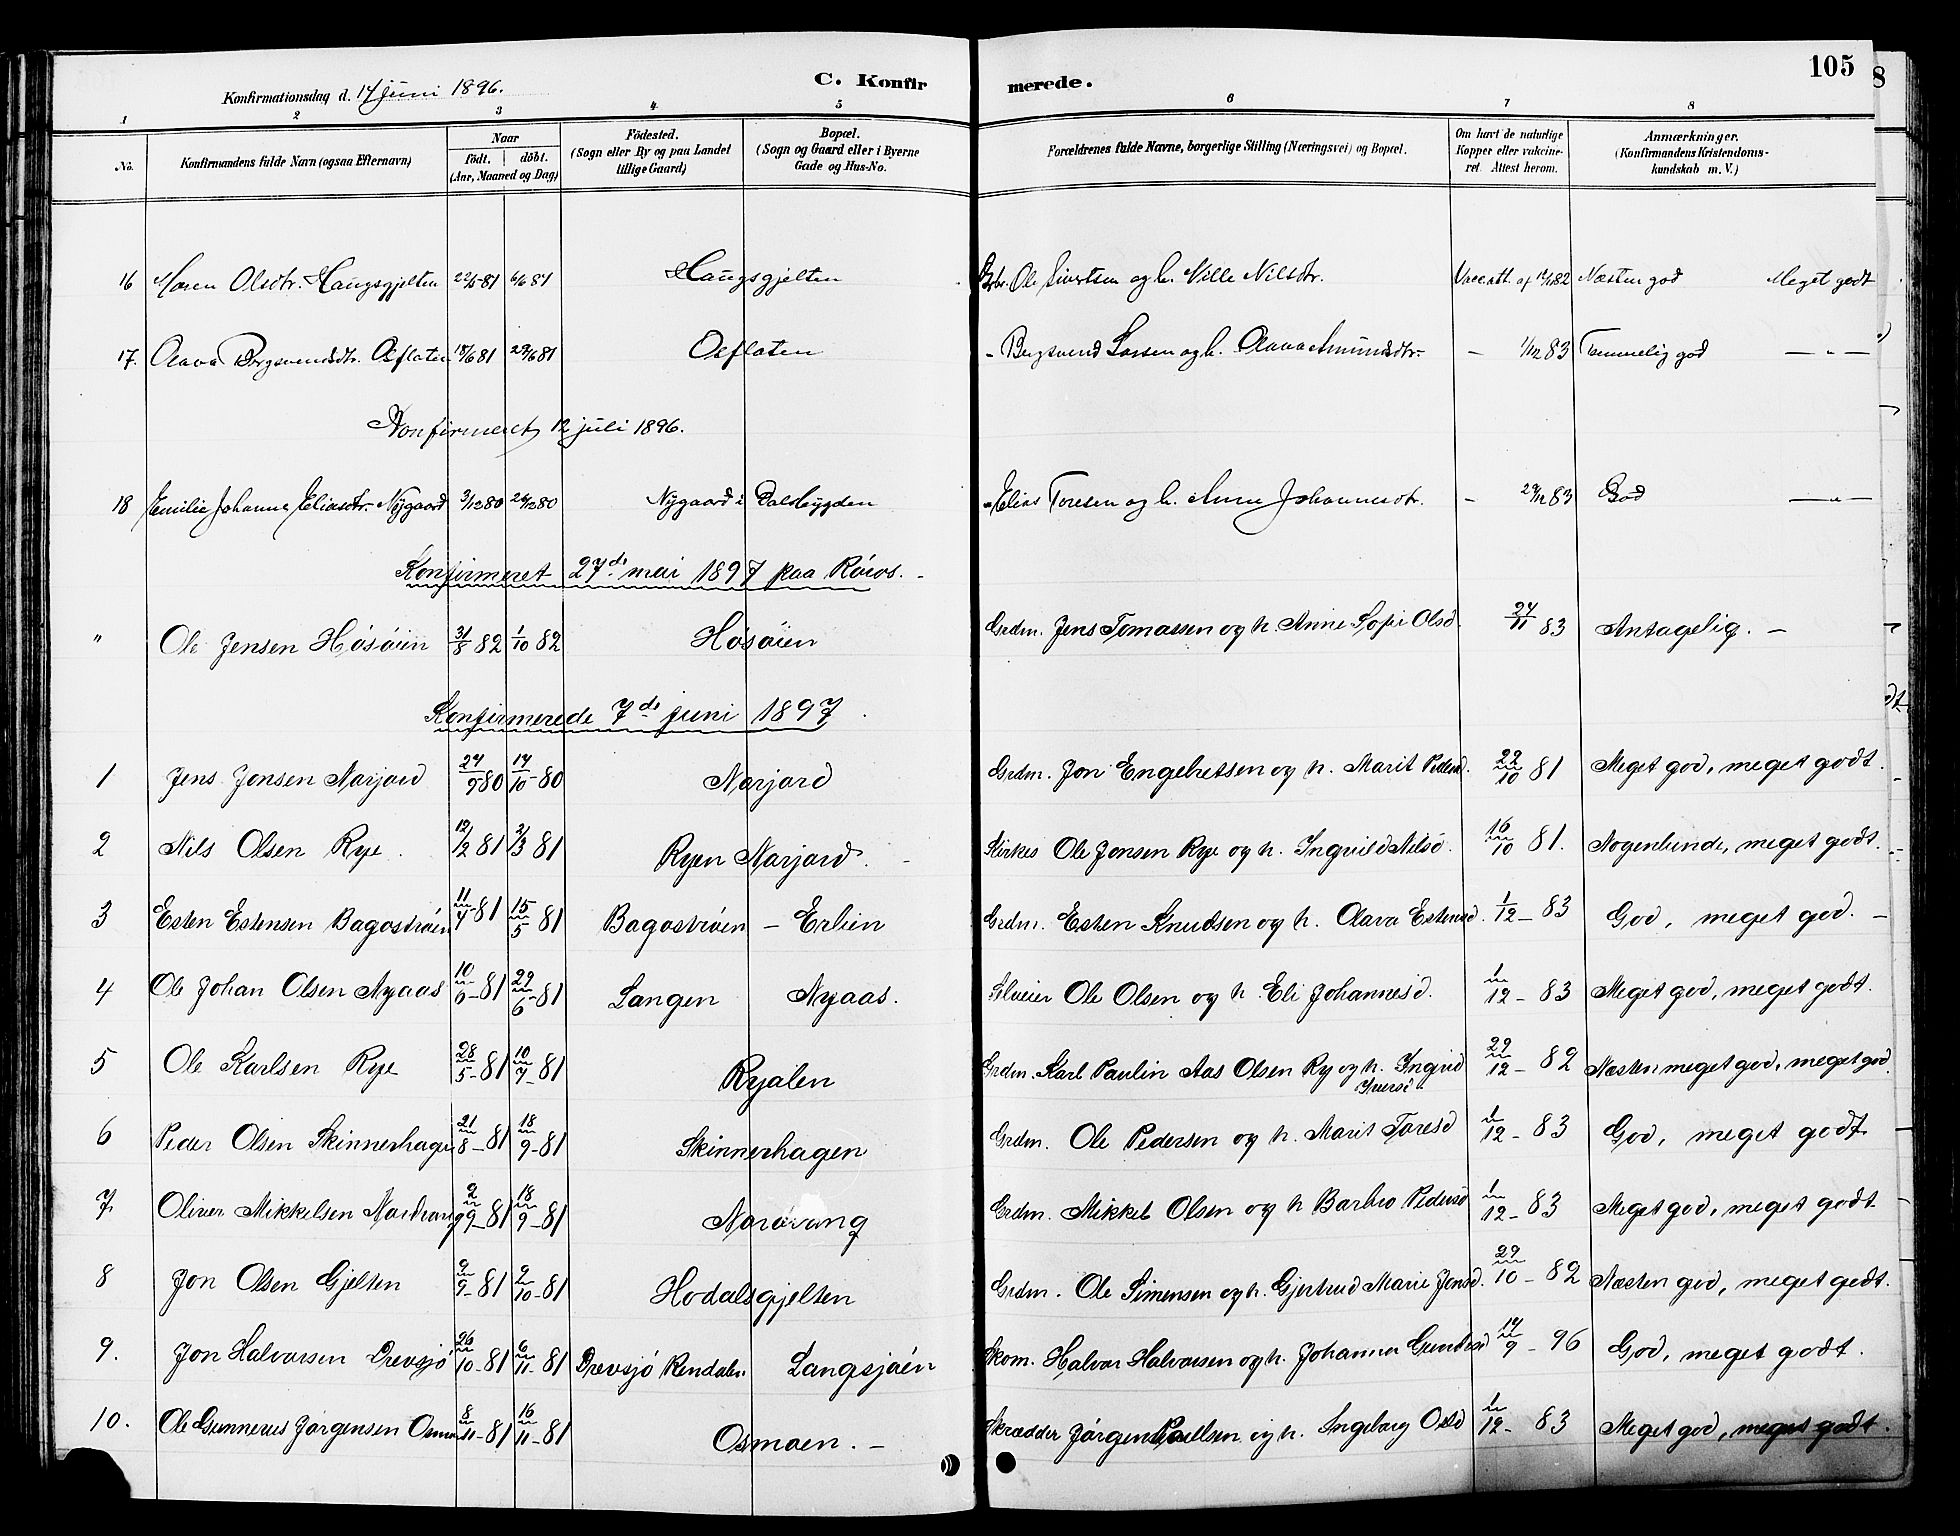 105
8
Konfirmationsdag d. 14 juni 1896.
C. Konfir
merede.
1 2 3 4 5 6 7 8
No.
Konfirmandens fulde Navn (ogsaa Efternavn)
Naar
födt. döbt.
(Aar, Maaned og Dag)
Födested.
(Sogn eller By og paa Landet
tillige Gaard)
Bopæl.
(Sogn og Gaard eller i Byerne
Gade og Hus-No.
Forældrenes fulde Navne, borgerlige Stilling (Næringsvei) og Bopæl.
Om havt de naturlige
Kopper eller vakcine-
ret. Attest herom.
Anmærkninger.
(Konfirmandens Kristendoms-
kundskab m. V.)
16 Maren Olsdtr. Haugsgjelten 22/5 81 6/6 81 Haugsgjelten Ole Sivertsen og h. Nille Nilsdtr. Vacc. att. af 82 Næsten god Meget godt
17. Olava Bergsvendsdtr. Oiflaten 18/6 81 29/6 81 Oiflaten - Bergsvend Larsen og h. Olava Amundsdtr. - 1/12 83 Temmelig god — „ —
Konfirmeret 12 juli 1896.
18 Emilie Johanne Eliasdtr. Nygaard 3/12 80 26/12 80 Nygaard i Dalsbygden „ Elias Toresen og h. Anne Johannesdtr. - 29/12 83 God — „ —
Konfirmeret 27de mai 1897 paa Röros. -
" Ole Jensen Høsøien 31/8 82 1/10 82 Høsøien Grdm. Jens Tomassen og h. Anne Sofie Olsd. 24/11 83 Antagelig. -
Konfirmerede 7de juni 1897.
1 Jens Jonsen Narjord 24/9 80 14/10 - 80 Narjord Grdm. Jon Engebretsen og h. Marit Pedersd. 22/10 81 Meget god, meget godt.
2 Nils Olsen Rye. 12/2 81 2/3 81 Ryen Narjord. Kirkes Ole Jonsen Rye og h. Ingvild Nilsd. 16/10 81. Nogenlunde, meget godt.
3 Esten Estensen Bagostrøen 11/4 - 81 15/5 81 Bagostrøen - Erlien Grdm. Esten Knudsen og h. Olava Estensd. 1/12 - 83 God, meget god. -
4 Ole Johan Olsen Nyaas 10/6 - 81 29/6 - 81 Langen Nyaas. Slveier Ole Olsen og h. Eli Johannesd. 1/12 - 83 Meget god, meget godt.
5 Ole Karlsen Rye 28/5 - 81 10/7 - 81 Ryalen Grdm. Karl Paulin Aas Olsen Ry og h. Ingrid Iversd 29/12 - 82 Næsten meget god, meget god.
6 Peder Olsen Skinnerhagen 21/8 - 81 18/9 - 81 Skinnerhagen Grdm. Ole Pedersen og h. Marit Toresd 1/12 - 83 God, meget godt
7 Oliver Mikkelsen Nordvang 2/9 - 81 18/9 - 81 Nordvang Grdm. Mikkel Olsen og h Barbro Pedersd 1/12 - 83 Meget god, meget godt
8 Jon Olsen Gjelten 9/9 - 81 2/10 - 81 Hodalsgjelten Grdm. Ole Simensen og h. Gjertrud Marie Jonsd. 29/10 - 82 Næsten god, meget godt.
9. Jon Halvorsen Drevsjö 26/10 - 81 6/11 - 81 Drevsjö Rendalen Langsjøén Skom. Halvor Halvorsen og h. Johanna Gundesd 14/9 - 96 God, meget godt.
10. Ole Gunnerus Jørgensen Osmoen 8/11 - 81 16/11 - 81 Osmoen. - Skrædder Jørgen Paulsen og h. Ingeborg Olsd 1/12 - 83 Meget god, meget godt.